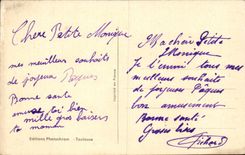 Chere Petite Monique
mes meilleurs souhaits
de joyeux Pâques
Bonne santé
amuse toi bien
mille gros baisers
ta maman
Editions Photochrom - Toulouse
Ma chère Petite
Monique
Je t'envoi tous mes
meilleurs souhaits
de joyeuses Pâques
bon amusement
Bonne santé
Grosses bises